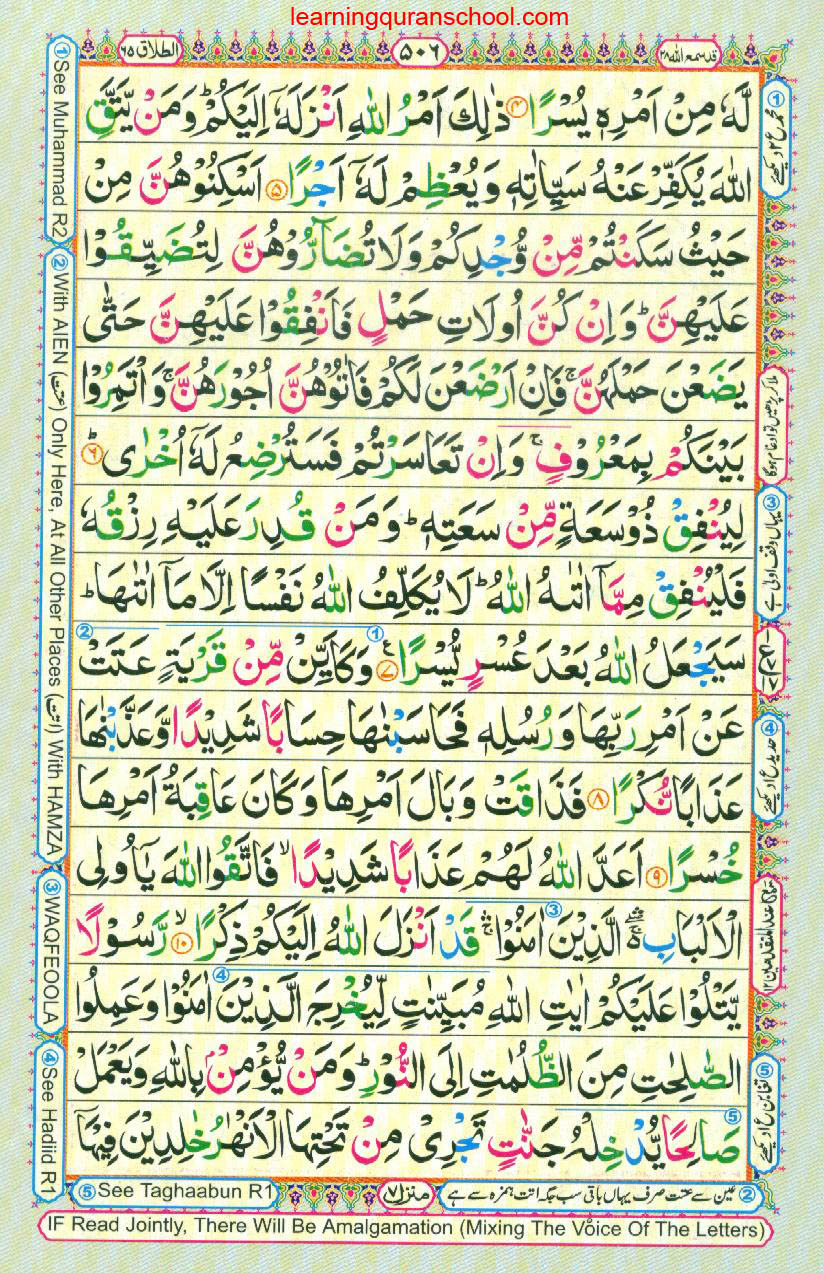 learningquranschool.com
قد سمع الله ٢٨
٥٠٦
الطلاق ٦٥
لَّهٗ مِنْ اَمْرِهٖ يُسْرًا ۴ ذٰلِكَ اَمْرُ اللّٰهِ اَنْزَلَهٗۤ اِلَيْكُمْ ؕ وَمَنْ يَّتَّقِ
اللّٰهَ يُكَفِّرْ عَنْهُ سَيِّاٰتِهٖ وَيُعْظِمْ لَهٗۤ اَجْرًا ۵ اَسْكِنُوْهُنَّ مِنْ
حَيْثُ سَكَنْتُمْ مِّنْ وُّجْدِكُمْ وَلَا تُضَآرُّوْهُنَّ لِتُضَيِّقُوْا
عَلَيْهِنَّ ؕ وَاِنْ كُنَّ اُولَاتِ حَمْلٍ فَاَنْفِقُوْا عَلَيْهِنَّ حَتّٰى
يَضَعْنَ حَمْلَهُنَّ ۚ فَاِنْ اَرْضَعْنَ لَكُمْ فَاٰتُوْهُنَّ اُجُوْرَهُنَّ ۚ وَاْتَمِرُوْا
بَيْنَكُمْ بِمَعْرُوْفٍ ۚ وَاِنْ تَعَاسَرْتُمْ فَسَتُرْضِعُ لَهٗۤ اُخْرٰى ؕ ۶
لِيُنْفِقْ ذُوْ سَعَةٍ مِّنْ سَعَتِهٖ ؕ وَمَنْ قُدِرَ عَلَيْهِ رِزْقُهٗ
فَلْيُنْفِقْ مِمَّاۤ اٰتٰىهُ اللّٰهُ ؕ لَا يُكَلِّفُ اللّٰهُ نَفْسًا اِلَّا مَاۤ اٰتٰىهَا ؕ
سَيَجْعَلُ اللّٰهُ بَعْدَ عُسْرٍ يُّسْرًا ۷ وَكَاَيِّنْ مِّنْ قَرْيَةٍ عَتَتْ
عَنْ اَمْرِ رَبِّهَا وَرُسُلِهٖ فَحَاسَبْنٰهَا حِسَابًا شَدِيْدًا وَّعَذَّبْنٰهَا
عَذَابًا نُّكْرًا ۸ فَذَاقَتْ وَبَالَ اَمْرِهَا وَكَانَ عَاقِبَةُ اَمْرِهَا
خُسْرًا ۹ اَعَدَّ اللّٰهُ لَهُمْ عَذَابًا شَدِيْدًا ۙ فَاتَّقُوا اللّٰهَ يٰۤاُولِى
الْاَلْبَابِ ۛۚ الَّذِيْنَ اٰمَنُوْا ۛؕ قَدْ اَنْزَلَ اللّٰهُ اِلَيْكُمْ ذِكْرًا ۙ ۱۰ رَّسُوْلًا
يَّتْلُوْا عَلَيْكُمْ اٰيٰتِ اللّٰهِ مُبَيِّنٰتٍ لِّيُخْرِجَ الَّذِيْنَ اٰمَنُوْا وَعَمِلُوا
الصّٰلِحٰتِ مِنَ الظُّلُمٰتِ اِلَى النُّوْرِ ؕ وَمَنْ يُّؤْمِنْۢ بِاللّٰهِ وَيَعْمَلْ
صَالِحًا يُّدْخِلْهُ جَنّٰتٍ تَجْرِىْ مِنْ تَحْتِهَا الْاَنْهٰرُ خٰلِدِيْنَ فِيْهَاۤ
① See Muhammad R2
② With AIEN (عتت) Only Here, At All Other Places (اتت) With HAMZA
③ WAQFEOOLA
④ See Hadiid R1
③ یہاں وقف اولی ہے
④ حدید ع ا دیکھئے
⑤ تغابن ع ا دیکھئے
② عین سے عتت صرف یہاں باقی سب جگہ اتت ہمزہ سے ہے
منزل ۷
⑤ See Taghaabun R1
IF Read Jointly, There Will Be Amalgamation (Mixing The Voice Of The Letters)